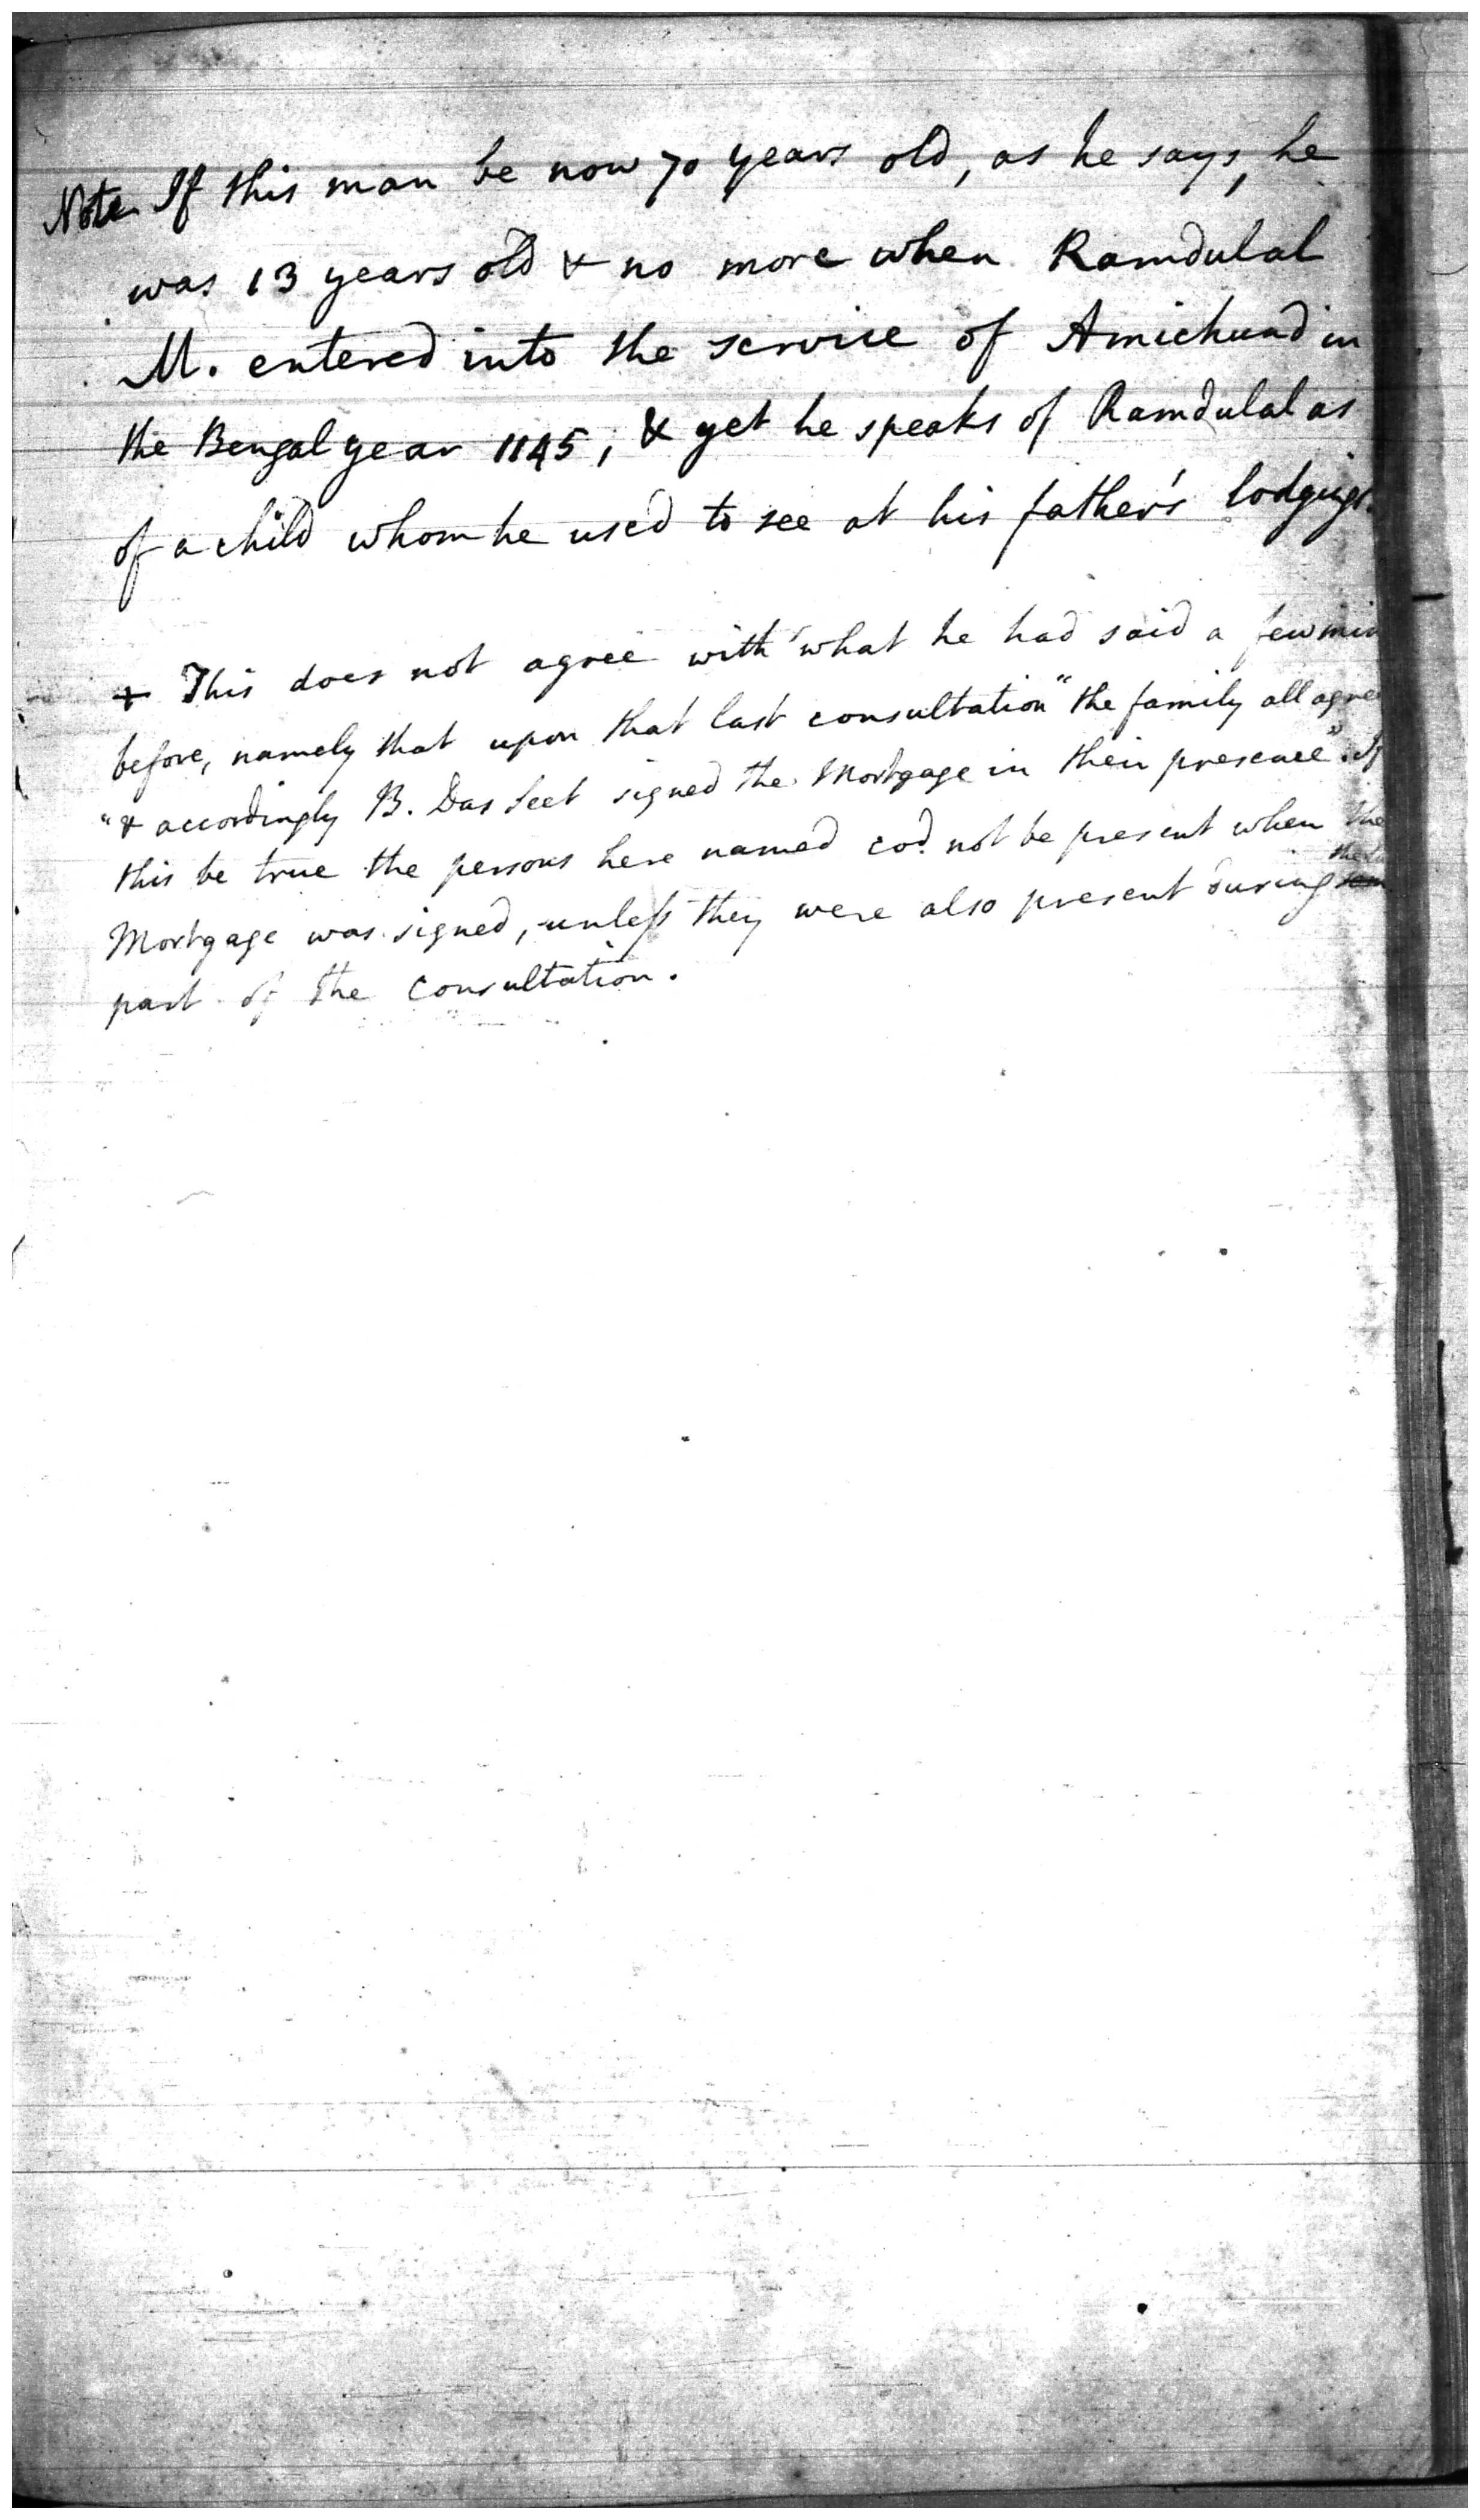 Note If this man be now 70 years old, as he says, he
was 13 years old & no more when Ramdulal
M. entered into the service of Amichund in
the Bengal year 1145, & yet he speaks of Ramdulal as
of a child whom he used to see at his father's lodgings.
+ This does not agree with what he had said a few min
before, namely that upon that last consultation "the family all agree
"& accordingly B. Das Seet signed the Mortgage in their presence". If
this be true the persons here named cod. not be present when the
Mortgage was signed, unless they were also present during the
part of the Consultation.